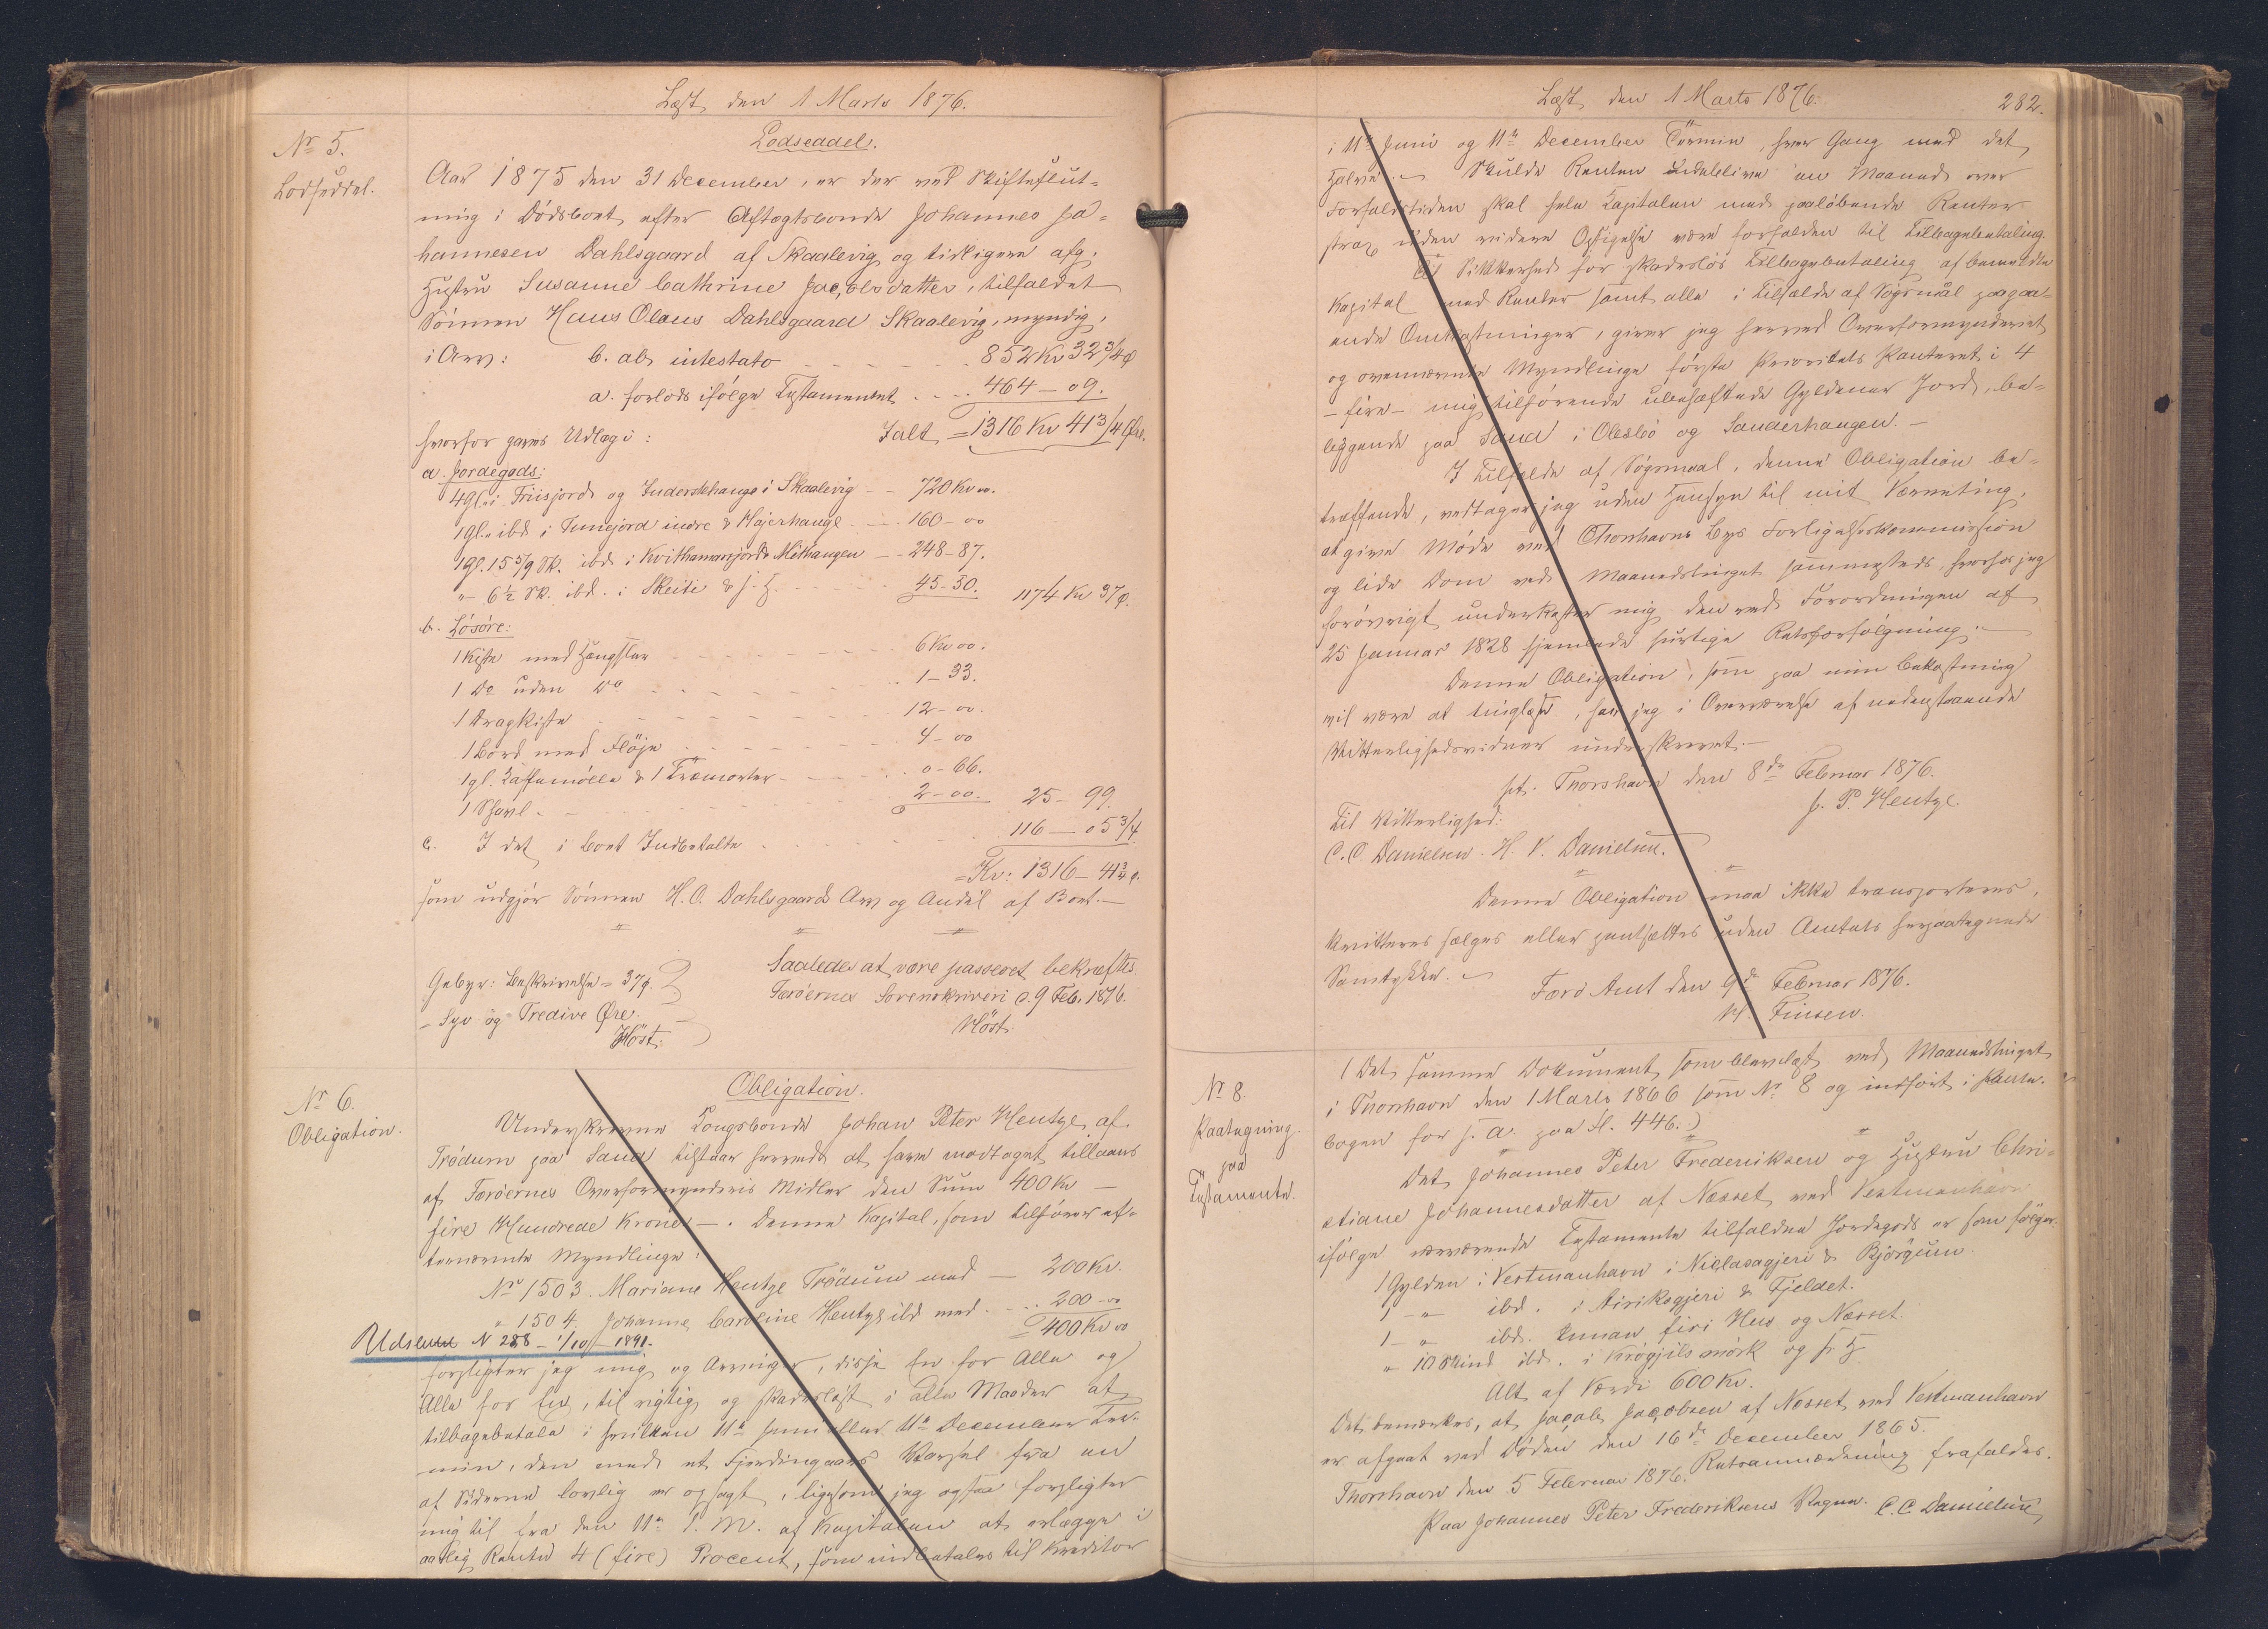 Læst den 1 Marts 1876.
Nr 5.
Lodseddel.
Lodseddel.
Aar 1875 den 31 December, er der ved Skifteslut-
ning i Dödsboet efter Aftægtsbonde Johannes Jo-
hannesen Dahlsgaard af Skaalevig og tidligere afg.
Hustru Susanne Cathrine Jacobsdatter, tilfaldet
Sönnen Hans Olaus Dahlsgaard Skaalevig, myndig,
i Arv: b. ab intestato 852 Kr 32 3/4 Ø
a. forlods ifölge Testamentet 464 – 09.
hvorfor gjøres Udlæg i: Ialt = 1316 Kr 41 3/4 Øre.
a. Jordegods:
4 gl. i Friisjord og Inderstehauge i Skaalevig – 720 Kr 00.
1 gl. ibd i Tunejord indre & Højerhauge – 160 – 00
1 gl. 15 5/9 Sk. ibd i Kvithammerjord & Mithaugen – 248 – 87.
" 6 1/2 Sk. ibd. i Skeiti & s. H. 45 – 30. 1174 Kr 37 Ø.
b. Lösöre:
1 Kiste med Hængsler 6 Kr 00.
1 Do uden Do 1 – 33.
1 Dragkiste 12 – 00.
1 Bord med Flöje 4 – 00
1 gl. Kaffemölle & 1 Træmorter 0 – 66.
1 Skovl 2 – 00. 25 – 99.
c. I det i Boet Indbetalte 116 – 05 3/4
= Kr: 1316 – 41 3/4 Ø.
som udgjör Sönnen H. O. Dahlsgaards Arv og Andel af Boet.
Gebyr: Beskrivelse = 37 Ø.
– Syv og Tredive Øre.
Höst.
Saaledes at være passeret bekræftes.
Færöernes Sorenskriveri d. 9 Feb. 1876.
Höst.
Nr 6.
Obligation.
Obligation.
Underskrevne Kongsbonde Johan Peter Hentze af
Trödum paa Sand tilstaar herved at have modtaget tillaans
af Færöernes Overformynderis Midler den Sum 400 Kr –
fire Hundrede Kroner –. Denne Kapital, som tilhörer ef-
ternævnte Myndlinge:
No 1503. Mariane Hentze Trödum med – 200 Kr.
" 1504. Johanne Caroline Hentze ibd med 200 – 00
= 400 Kr 00
Udslettet N 288 – 1/10 – 1891.
forpligter jeg mig og Arvinger, disse En for Alle og
Alle for En, til rigtig og skadeslöst i alle Maader at
tilbagebetale i hvilken 11te Juni eller 11te December Ter-
min, den med et Fjerdingaars Varsel fra en
af Siderne lovlig er opsagt, ligesom jeg ogsaa forpligter
mig til fra den 11te d. M. af Kapitalen at erlægge i
aarlig Rente 4 (fire) Procent, som indbetales til Kreditor
Læst den 1 Marts 1876. 282.
i 11te Juni og 11te December Termin, hver Gang med det
Halve. – Skulde Renten udeblive en Maaned over
Forfaldstiden skal hele Kapitalen med paalöbende Renter
strax uden videre Opsigelse være forfalden til Tilbagebetaling.
Til Sikkerhed for skadeslös Tilbagebetaling af bemeldte
Kapital med Renter samt alle i Tilfælde af Sögsmål paagaa-
ende Omkostninger, giver jeg herved Overformynderiet
og ovennævnte Myndlinge förste Prioritets Panteret i 4
– fire – mig tilhörende ubehæftede Gyldener Jord, be-
liggende paa Sand i Olesbö og Sanderhaugen. –
I Tilfælde af Sögsmaal, denne Obligation be-
træffende, vedtager jeg uden Hensyn til mit Værneting,
at give Möde ved Thorshavns Bys Forligelseskommission
og lide Dom ved Maanedstinget sammesteds, hvorhos jeg
forövrigt underkaster mig den ved Forordningen af
25 Januar 1828 hjemlede hurtige Retsforfölgning. –
Denne Obligation, som paa min Bekostning
vil være at tinglæse, har jeg i Overværelse af nedenstaaende
Vitterlighedsvidner underskrevet. –
pt. Thorshavn den 8de Februar 1876.
Til Vitterlighed: J. P. Hentze.
C. C. Danielsen. H. N. Danielsen.
Denne Obligation maa ikke transporteres,
kvitteres sælges eller pantsættes uden Amtets herpaategnede
Samtykke. –
Færö Amt den 9de Februar 1876.
H. Finsen.
Nr 8.
Paategning
paa
Testamente.
(Det samme Dokument som blev læst ved Maanedstinget
i Thorshavn den 1 Marts 1866 som No 8 og indfört i Pante-
bogen for s. A. paa fl. 446.)
Det Johannes Peter Frederiksen og Hustru Chri-
stiane Johannesdatter af Nesset ved Vestmanhavn
ifölge nærværende Testamente tilfaldne Jordegods er som fölger
1 Gylden i Vestmanhavn i Niclasagjeri & Björgum
1 – " ibd. i Airiksgjeri & Fjeldet.
1 – " ibd. Innan firi Hus og Nesset.
" 10 Skind ibd. i Krögjilsmörk og s. H.
Alt af Værdi 600 Kr.
Det bemærkes, at Jacob Jacobsen af Nesset ved Vestmanhavn
er afgaaet ved Döden den 16de December 1865.
Thorshavn den 5 Februar 1876. Retsanmærkning frafaldes.
Paa Johannes Peter Frederiksens Vegne. C. C. Danielsen